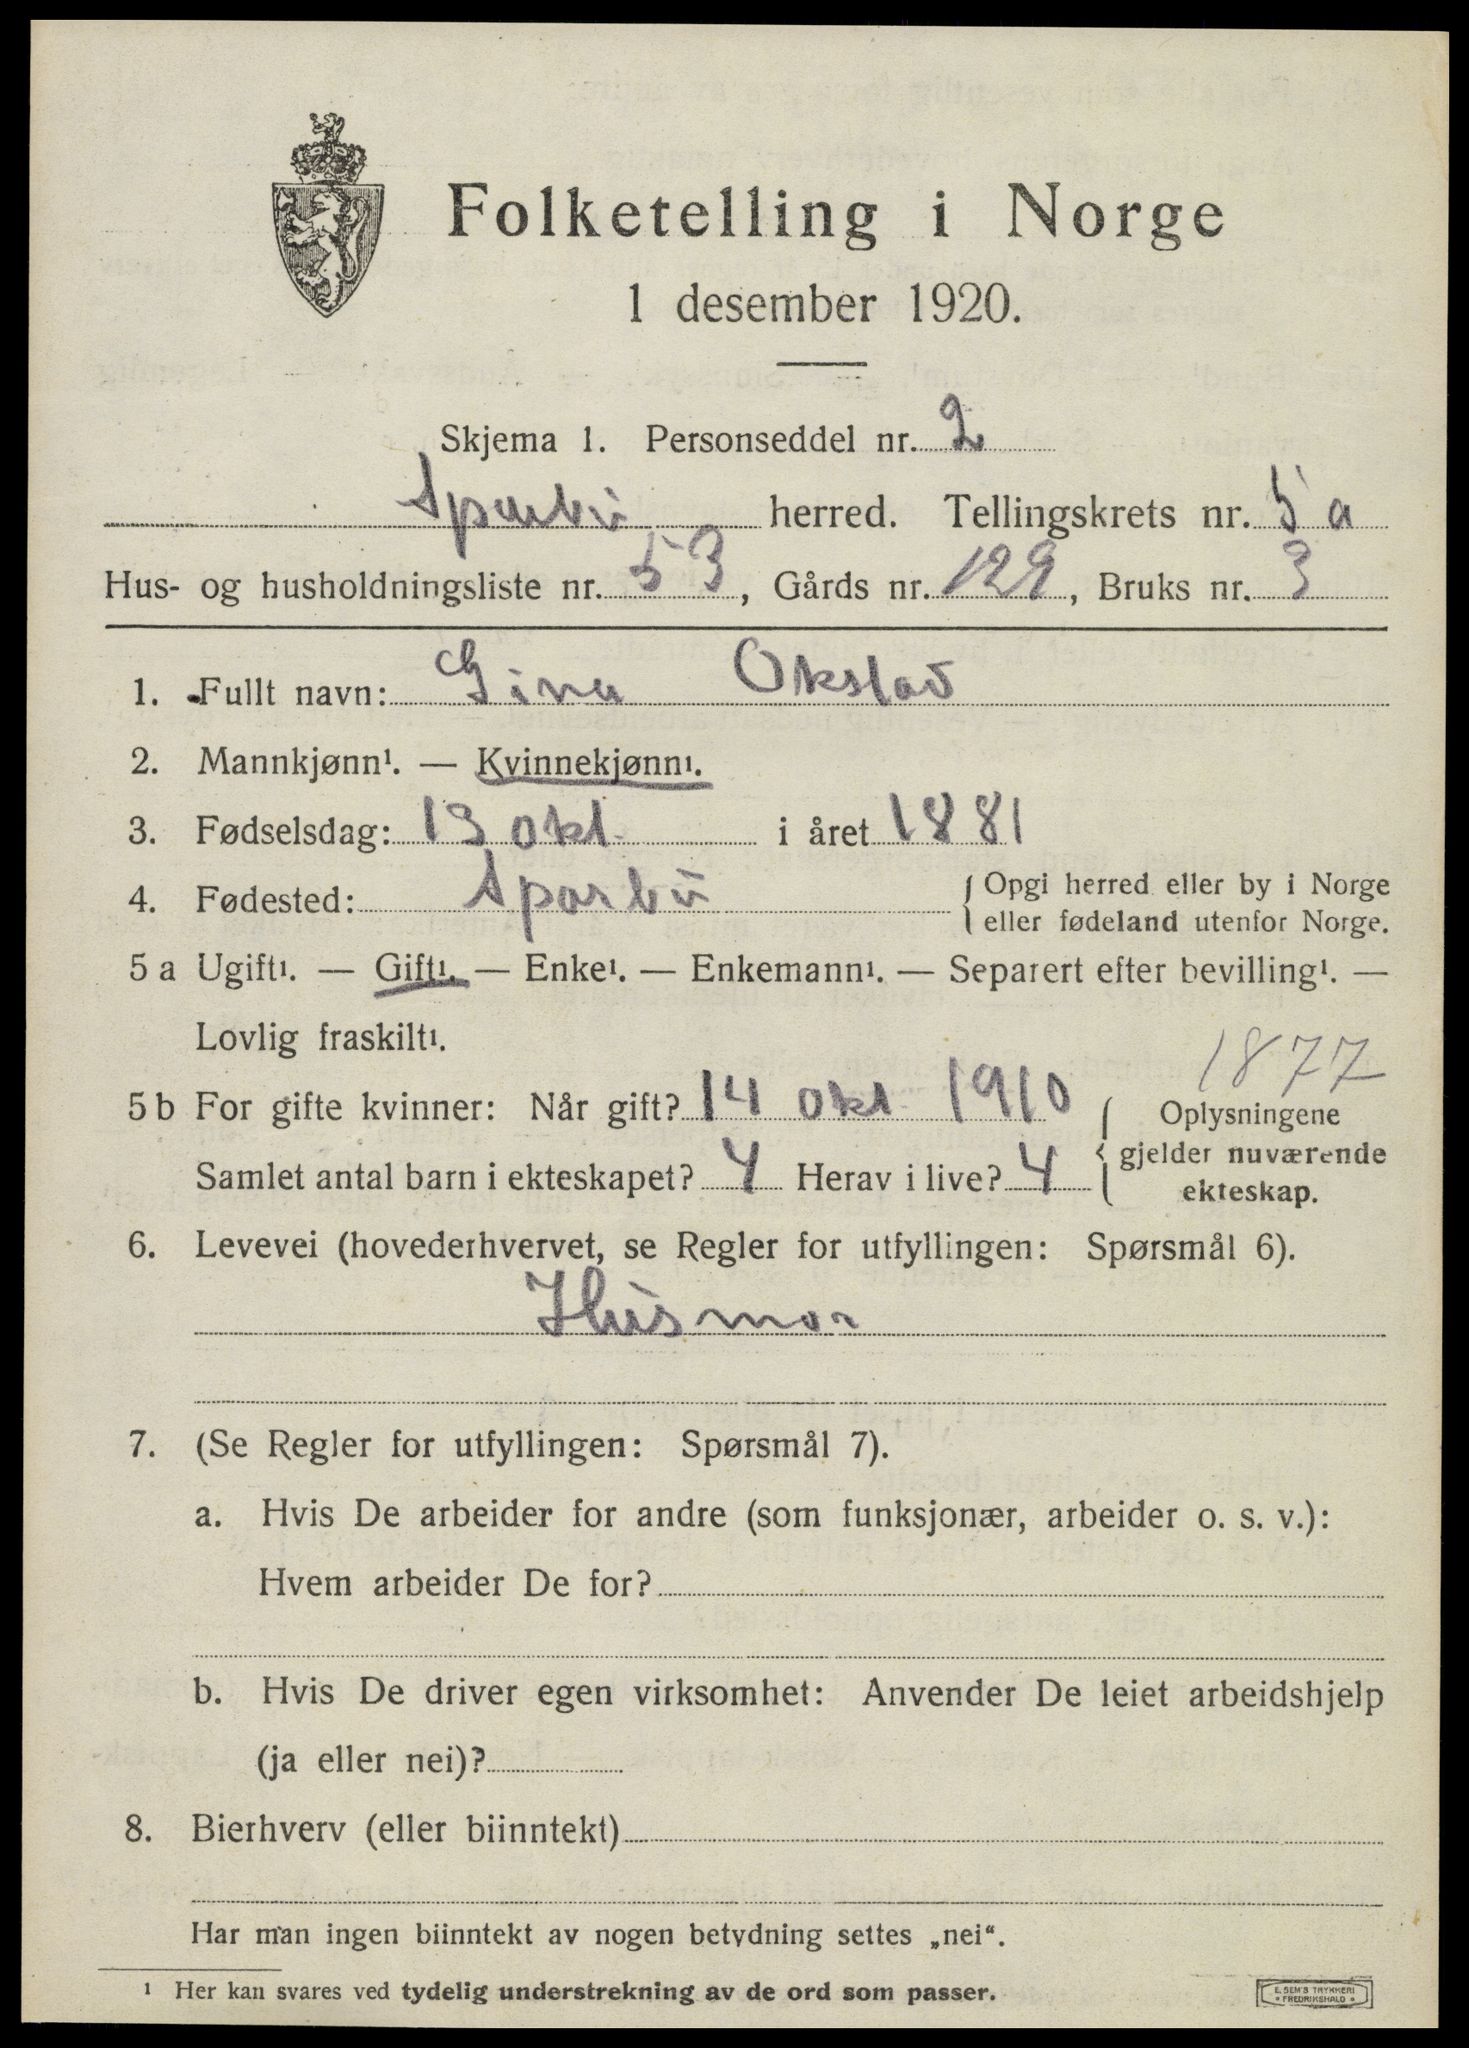 Folketelling i Norge
1 desember 1920.
Skjema 1. Personseddel nr. 2
Sparbu herred. Tellingskrets nr. 5 a
Hus- og husholdningsliste nr. 53, Gårds nr. 129, Bruks nr. 3
1. Fullt navn: Gina Okslad
2. Mannkjønn¹. — Kvinnekjønn¹.
3. Fødselsdag: 13 okt. i året 1881
4. Fødested: Sparbu { Opgi herred eller by i Norge
eller fødeland utenfor Norge.
5 a Ugift¹. — Gift¹. — Enke¹. — Enkemann¹. — Separert efter bevilling¹. —
Lovlig fraskilt¹.
1877
5 b For gifte kvinner: Når gift? 14 okt. 1910 { Oplysningene
gjelder nuværende
ekteskap.
Samlet antal barn i ekteskapet? 4 Herav i live? 4
6. Levevei (hovederhvervet, se Regler for utfyllingen: Spørsmål 6).
Husmor
7. (Se Regler for utfyllingen: Spørsmål 7).
a. Hvis De arbeider for andre (som funksjonær, arbeider o. s. v.):
Hvem arbeider De for?
b. Hvis De driver egen virksomhet: Anvender De leiet arbeidshjelp
(ja eller nei)?
8. Bierhverv (eller biinntekt)
Har man ingen biinntekt av nogen betydning settes „nei“.
¹ Her kan svares ved tydelig understrekning av de ord som passer.
E. SEM'S TRYKKERI
• FREDRIKSHALD •